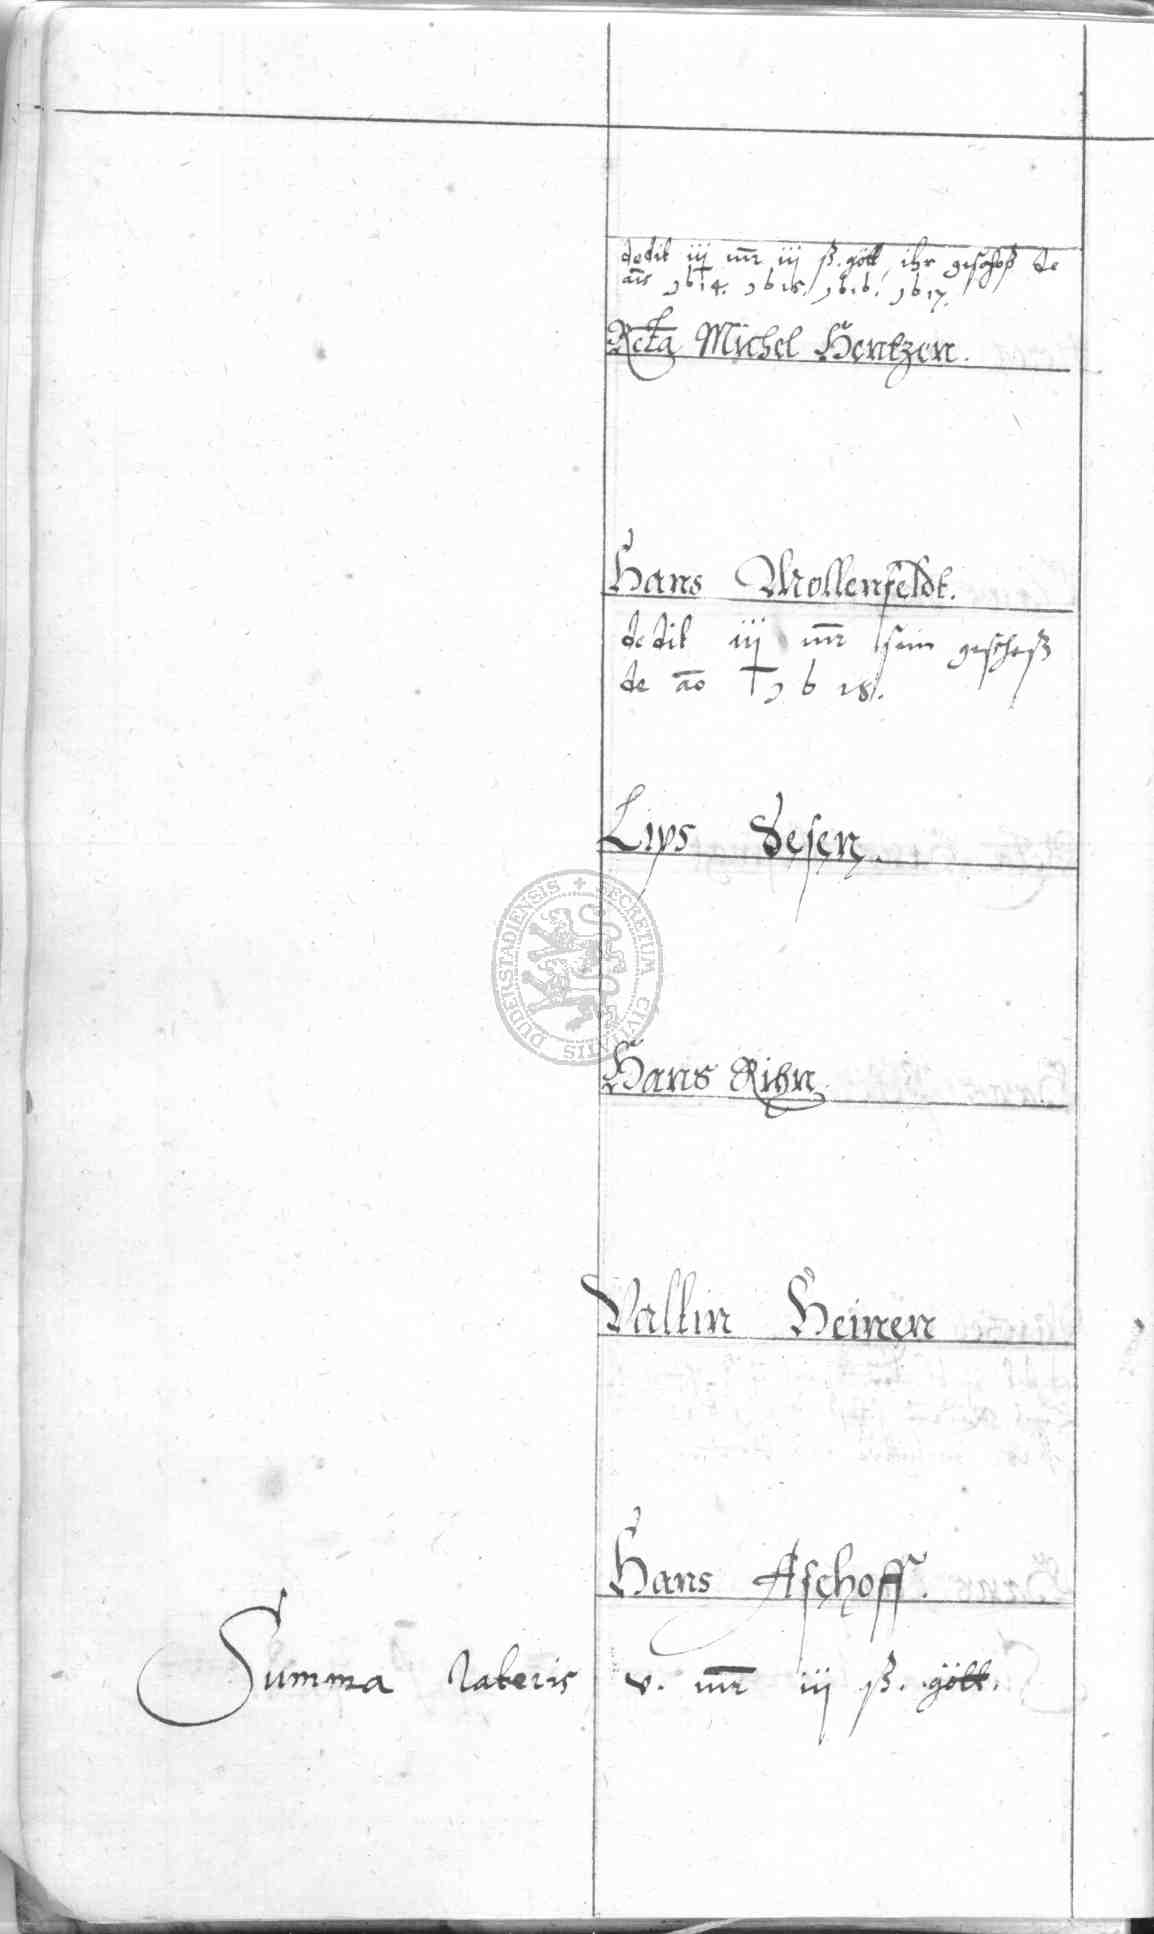 dedit iij mr iij ß. gött ihr geschoß de
ais 1614. 1615. 1616. 1617.
Rcta Michel Hentzen.
Hans Mollenfeldt.
dedit iij mr sein geschoß
de ao 1618.
Lips Desen
DUDERSTADIENSIS + SECRETUM CIVITATIS
Hans Rihn
Valtin Heinen
Hans Aschoff.
Summa lateris v. mr iij ß. gött.